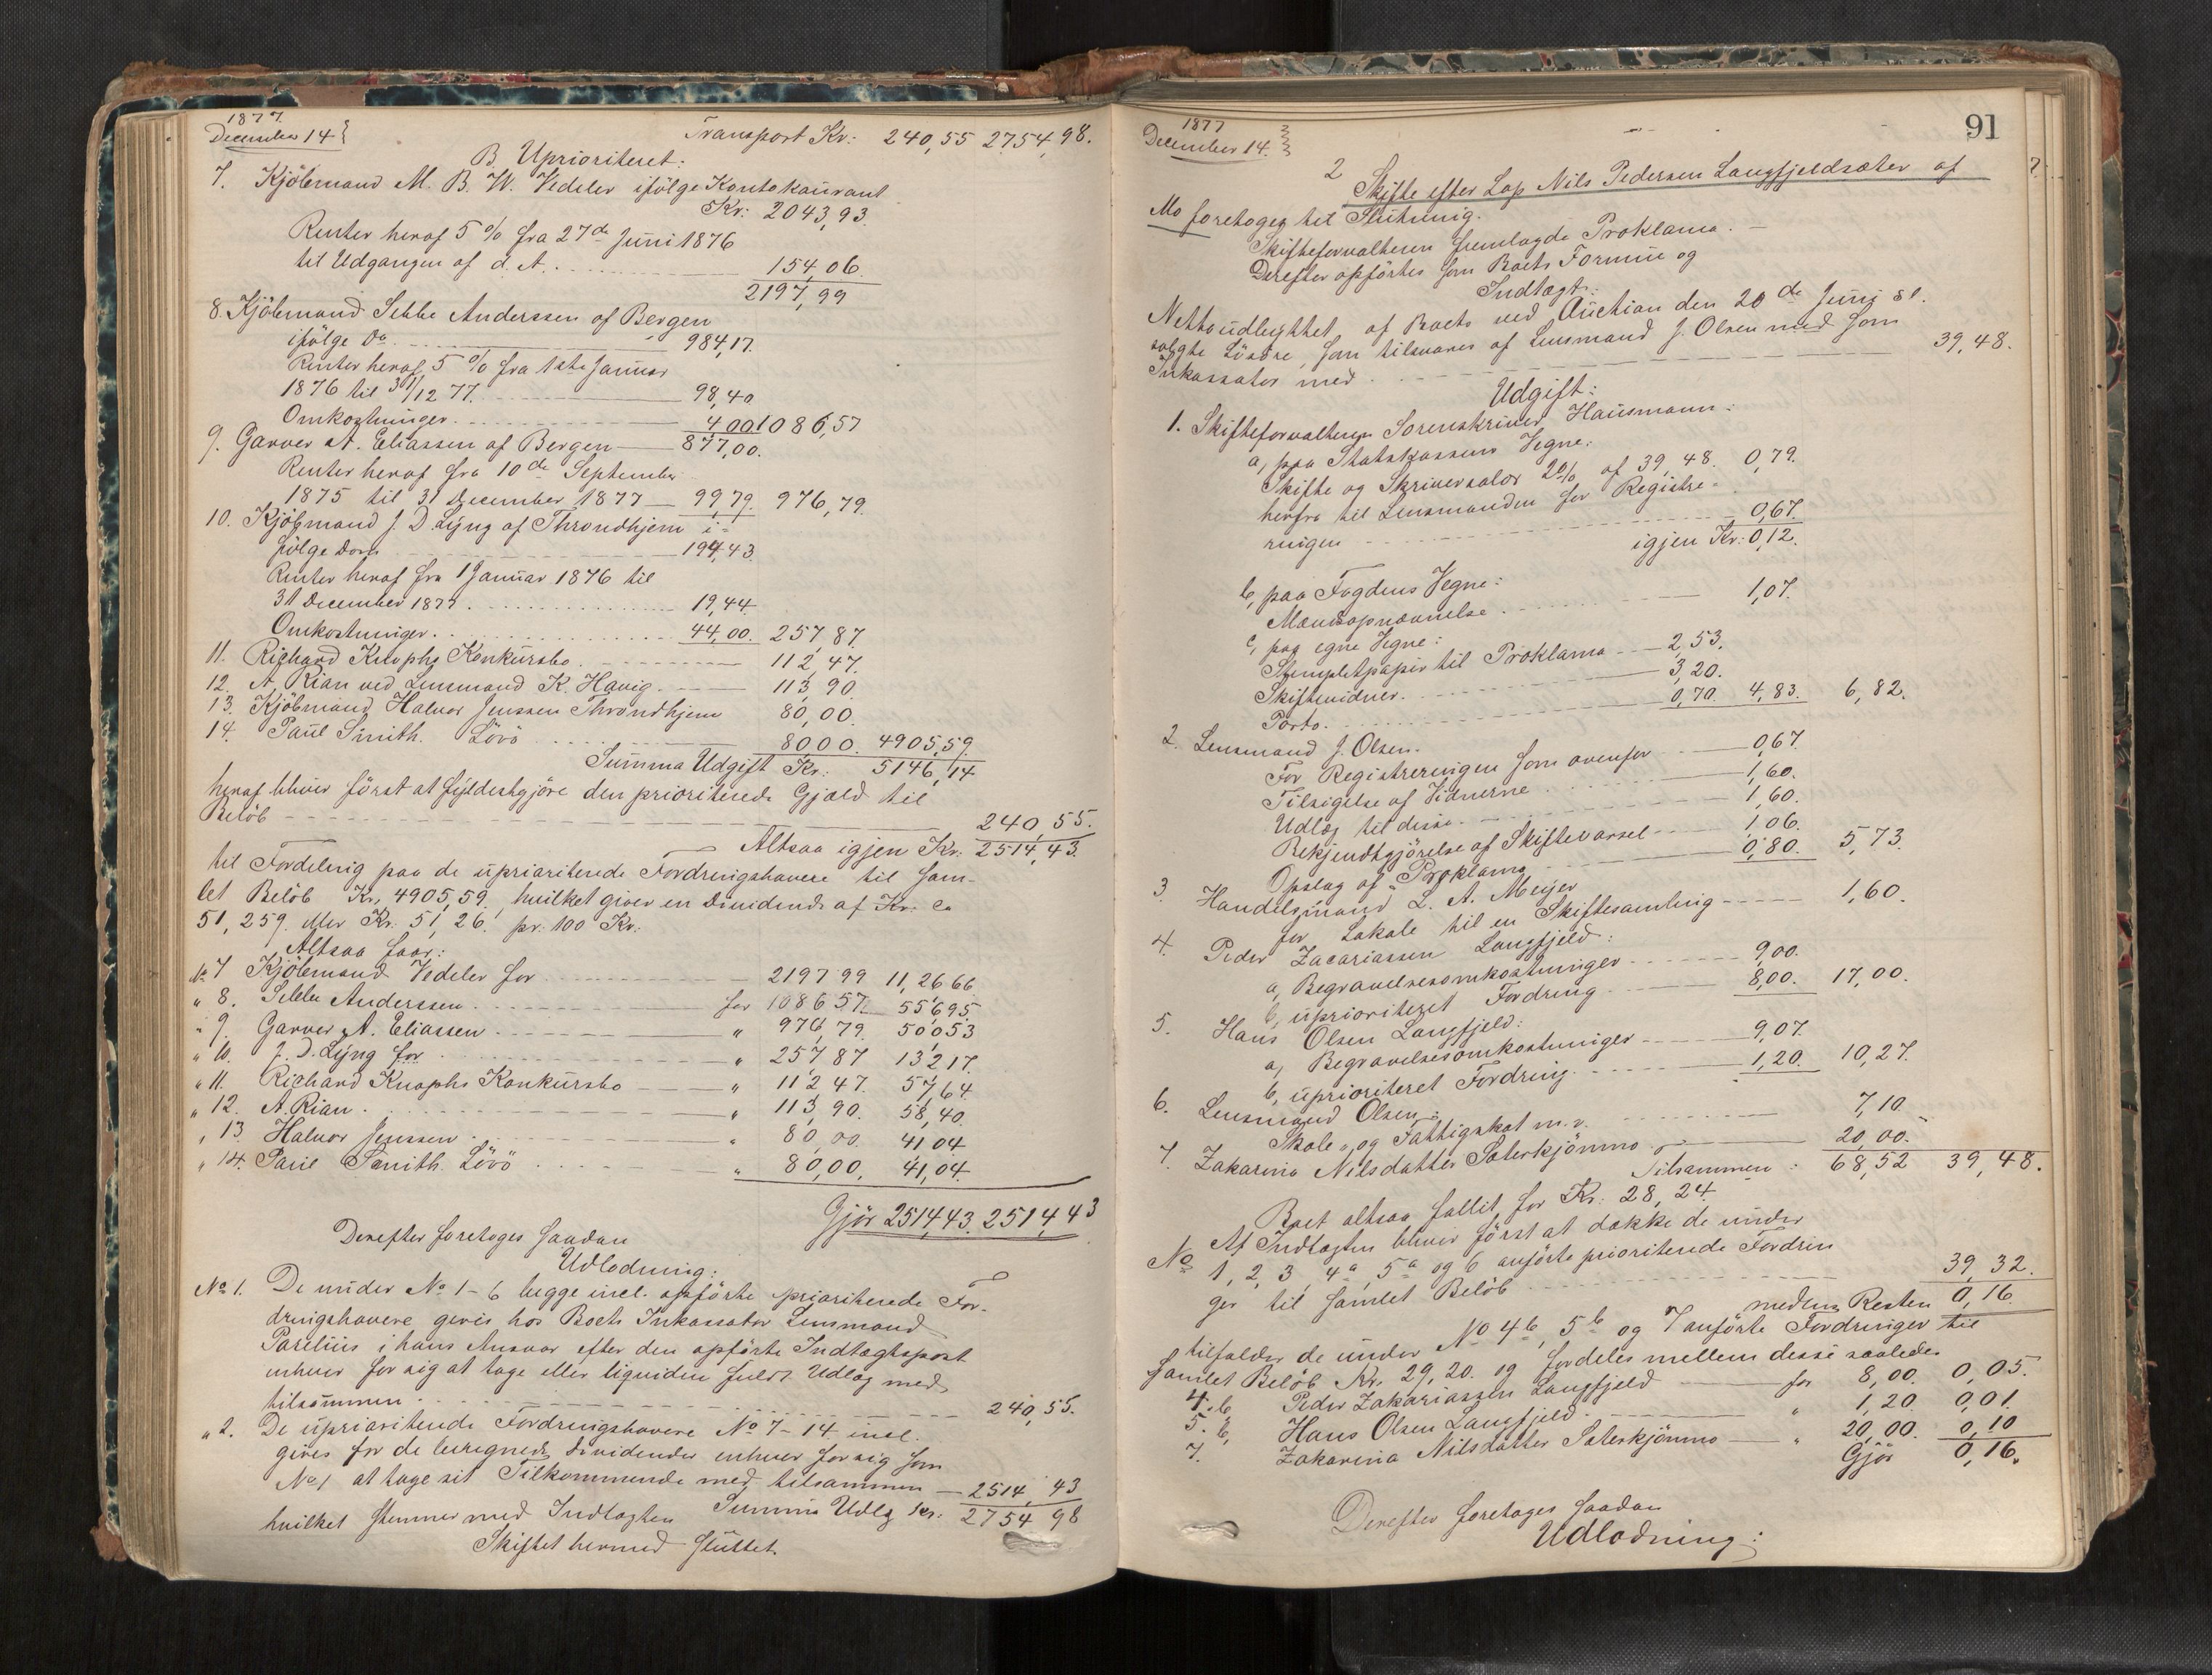 1877.
December 14
Transport Kr: 240,55 2754,98.
B. Uprioriteret:
7. Kjöbmand M. B. W. Vedeler ifölge Kontokaurant
Kr: 2043,93.
Renter heraf 5 % fra 27de Juni 1876
til Udgangen af d. A. 154,06.
2197,99
8. Kjöbmand Sebbe Anderssen af Bergen
ifölge Do 984,17.
Renter heraf 5 % fra 1ste Januar
1876 til 31/12 77. 98,40
Omkostninger. 4,00. 1086,57
9. Garver A. Eliassen af Bergen 877,00.
Renter heraf fra 10de September
1875 til 31 December 1877 99,79. 976,79.
10. Kjöbmand J. D. Lyng af Throndhjem i-
fölge Dom 194,43.
Renter heraf fra 1 Januar 1876 til
31 December 1877. 19,44.
Omkostninger. 44,00. 257,87.
11. Richard Knophs Konkursbo. 112,47.
12. A. Rian ved Lensmand K. Havig. 113,90.
13. Kjöbmand Halvor Jenssen Throndhjem 80,00.
14. Paul Smith. Lövö 80,00. 4905,59.
Summa Udgift Kr: 5146,14
heraf bliver först at fyldestgjöre den prioriterede Gjæld til
Belöb 240,55.
Altsaa igjen Kr: 2514,43.
til Fordeling paa de uprioriterede Fordringshavere til sam-
let Belöb Kr, 4905,59. hvilket giver en Dividende af Kr: ca
51,259. eller Kr. 51,26. pr: 100 Kr:
Altsaa faar:
No 7 Kjöbmand Vedeler for 2197 99 11,26 66.
" 8. Sebbe Anderssen. for 1086 57. 556 95.
" 9. Garver A. Eliassen. " 976,79. 500 53
" 10. J. D. Lyng for " 257,87 132 17.
" 11. Richard Knophs Konkursbo " 112 47. 57,64
" 12. A. Rian. " 113,90. 58,40.
" 13. Halvor Jenssen. " 80,00. 41 04
" 14. Paul Smith Lövö " 80,00, 41,04.
Gjör 2514,43. 2514,43
Derefter foretoges saadan
Udlodning:
No 1. De under No 1-6 begge incl. opförte prioriterede For-
dringshavere gives hos Boets Inkassator Lensmand
Parelius i hans Ansvar efter den opförte Indtægtspost
enhver for sig at tage eller liquidere fuldt Udlæg med
tilsammen 240,55.
" 2. De uprioriterede Fordringshavere No 7-14 incl.
gives for de beregnede Dividender enhver for sig som
No 1 at tage sit Tilkommende med tilsammen 2514,43
hvilket stemmer med Indtægten Summa Udlæg Kr: 2754 98
Skiftet hermed sluttet.
91
1877
December 14.
2 Skifte efter Lap Nils Pedersen Langfjeldsæter af
Mo foretoges til Slutning.
Skifteforvalteren fremlagde Proklama.
Derefter opförtes som Boets Formue og
Indtægt:
Nettoudbyttet af Boets ved Auction den 20de Juni sl.
solgte Lösöre, som tilsvares af Lensmand J. Olsen med som
Inkassator med 39,48.
Udgift:
1. Skifteforvalteren Sorenskriver Hausmann:
a, paa Statskassens Vegne:
Skifte og Skriversalær 2% af 39,48. 0,79.
herfra til Lensmanden for Registre-
ringen 0,67.
igjen Kr: 0,12.
b, paa Fogdens Vegne:
Mandsopnævnelse 1,07.
c, paa egne Vegne:
Stempletpapir til Proklama 2,53.
Skiftevidner. 3,20.
Porto. 0,70 4,83. 6,82.
2. Lensmand J. Olsen.
For Registreringen som ovenfor 0,67.
Tilsigelse af Vidnerne 1,60.
Udlæg til disse 1,60.
Bekjendtgjörelse af Skiftevarsel 1,06.
Opslag af Proklama 0,80. 5,73.
3. Handelsmand L. A. Meyer
for Lokale til en Skiftesamling 1,60.
4. Peder Zacariassen Langfjeld:
a, Begravelsesomkostninger 9,00.
b, uprioriteret Fordring 8,00. 17,00.
5. Hans Olsen Langfjeld:
a, Begravelsesomkostninger 9,07.
b, uprioriteret Fordring. 1,20. 10,27.
6. Lensmand Olsen:
Skole- og Fattigskat m. v. 7,10
7. Zakarina Nilsdatter Sæterkjönmo 20,00.
Tilsammen: 68,52 39,48.
Boet altsaa fallit for Kr: 28,24.
Af Indtægten bliver först at dække de under
No 1, 2, 3, 4a, 5a og 6 anförte prioriterede Fordrin
ger til samlet Belöb 39,32.
medens Resten 0,16.
tilfalder de under No 4b, 5b og 7 anförte Fordringer til
samlet Belöb Kr. 29,20. og fordeles mellem disse saaledes
4. b Peder Zakariassen Langfjeld for 8,00. 0,05.
5. b, Hans Olsen Langfjeld. " 1,20. 0,01.
7. Zakarina Nilsdatter Sæterkjönmo " 20,00. 0,10
Gjör 0,16.
Derefter foretoges saadan
Udlodning: